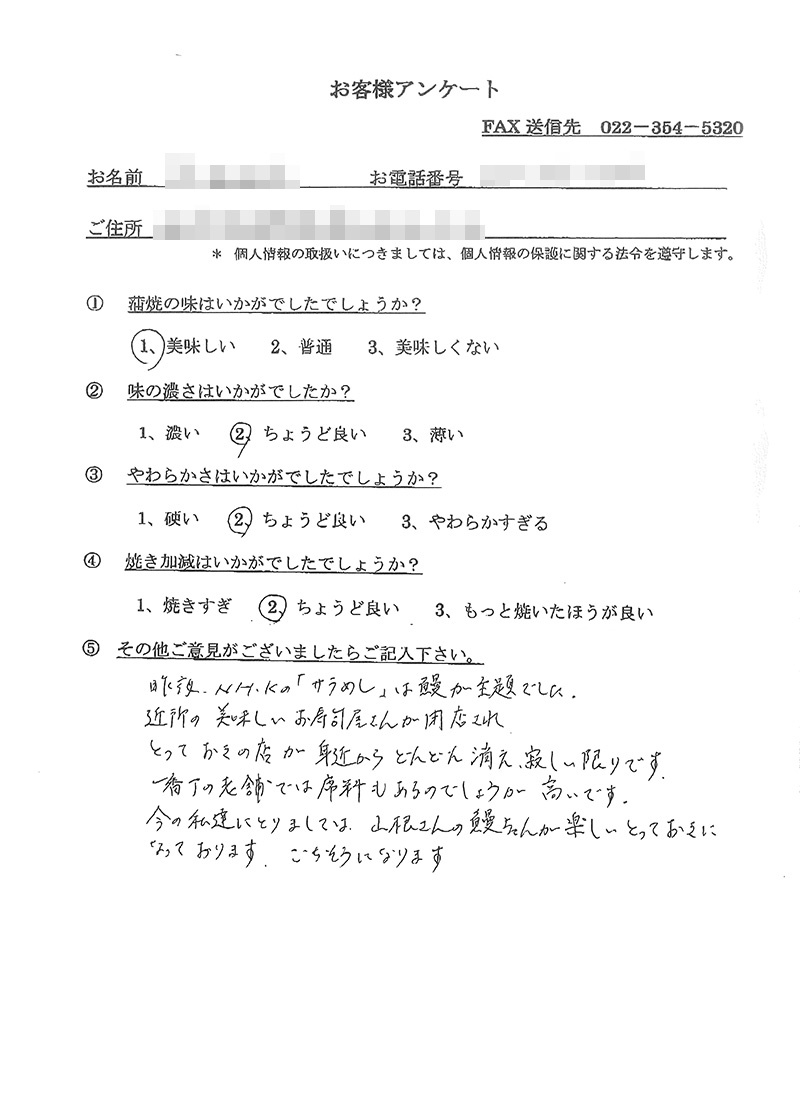 お客様アンケート
FAX 送信先　022－354－5320
お名前　お電話番号
ご住所
＊ 個人情報の取扱いにつきましては、個人情報の保護に関する法令を遵守します。
① 蒲焼の味はいかがでしたでしょうか？
1、美味しい　2、普通　3、美味しくない
② 味の濃さはいかがでしたか？
1、濃い　2、ちょうど良い　3、薄い
③ やわらかさはいかがでしたでしょうか？
1、硬い　2、ちょうど良い　3、やわらかすぎる
④ 焼き加減はいかがでしたでしょうか？
1、焼きすぎ　2、ちょうど良い　3、もっと焼いたほうが良い
⑤ その他ご意見がございましたらご記入下さい。
昨夜、NHKの「サラめし」は鰻が主題でした。
近所の 美味しい お寿司屋さんが閉店され
とって おきの店 が 身近から どんどん 消え、寂しい限りです。
一番丁の老舗では席料もあるのでしょうが 高いです。
今の私達にとりましては、山根さんの鰻さんが楽しいとっておきに
なって おります。ごちそうになります